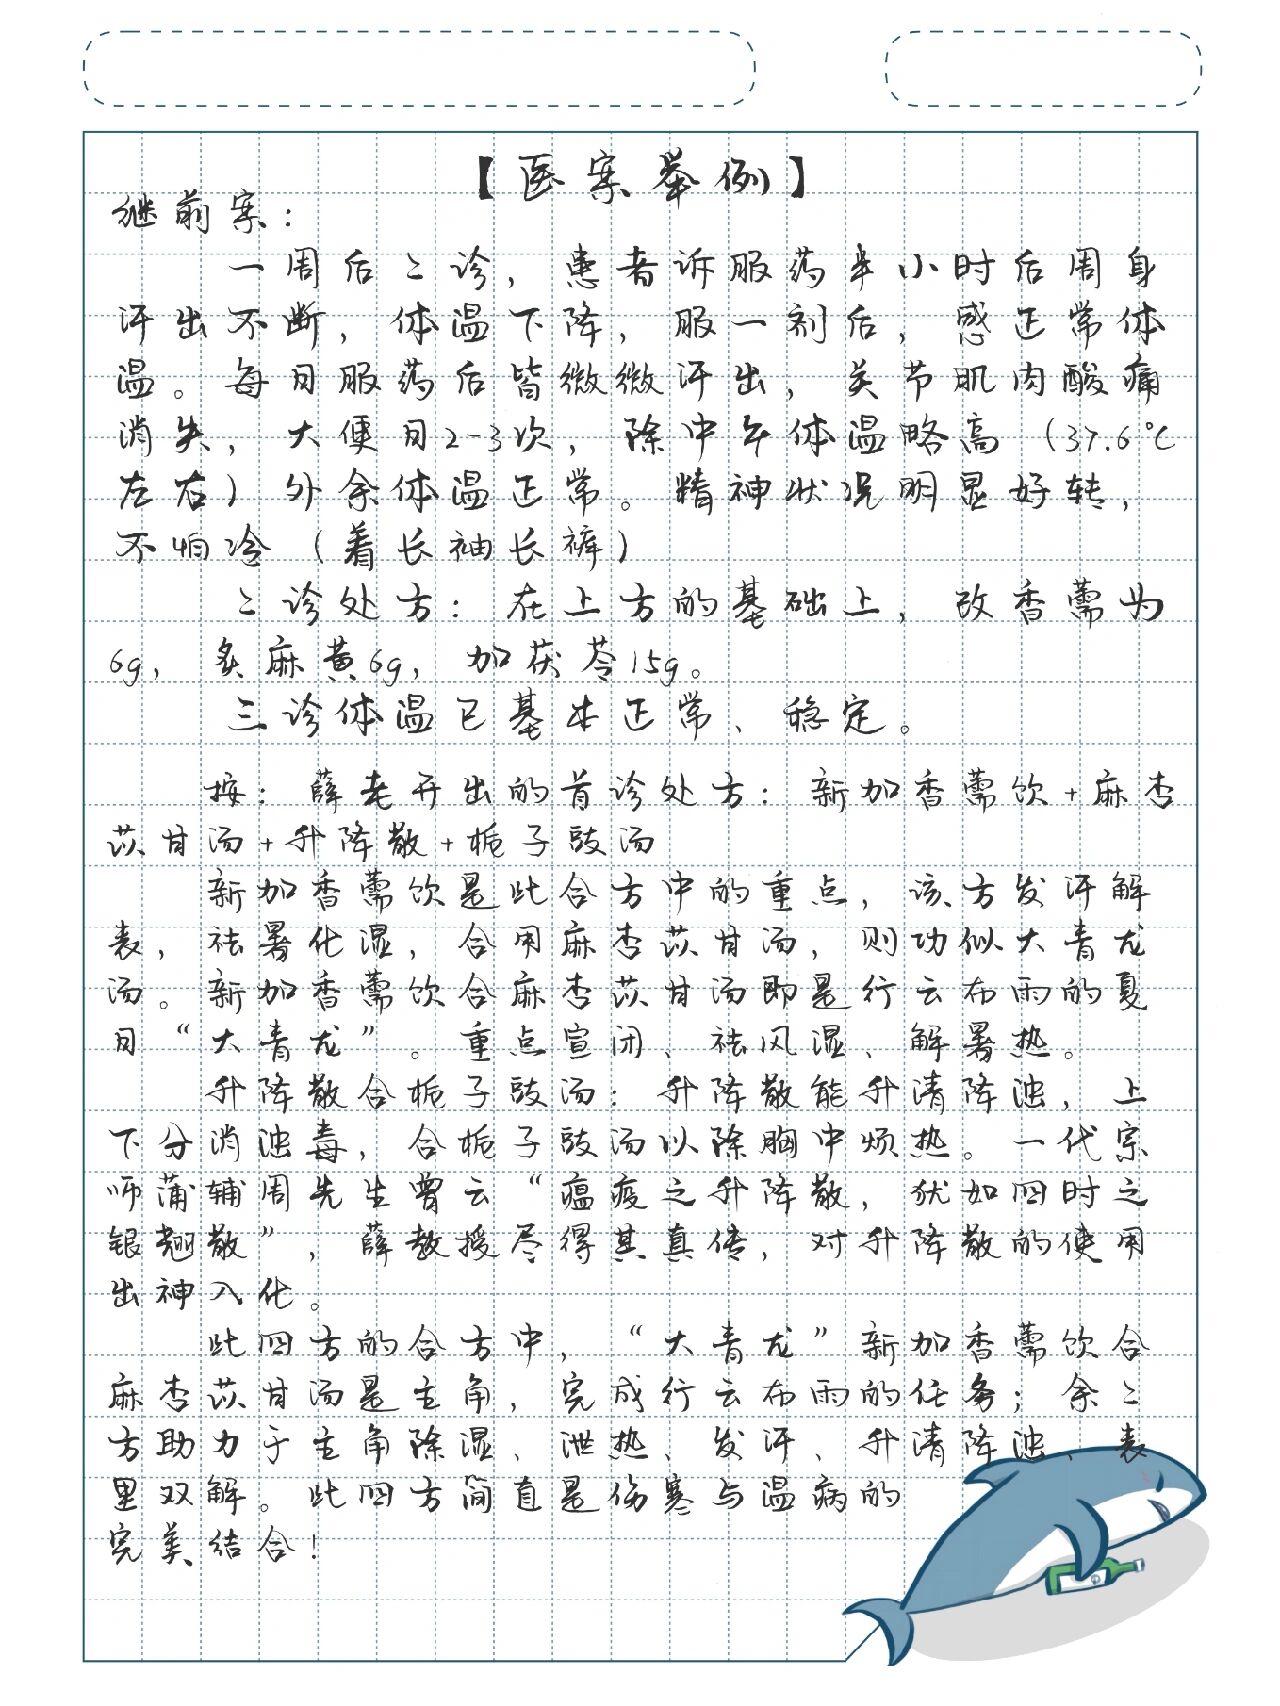 【医案举例】
继前案：
一周后二诊，患者诉服药半小时后周身
汗出不断，体温下降，服一剂后，感正常体
温。每日服药后皆微微汗出，关节肌肉酸痛
消失，大便日2-3次，除中午体温略高（37.6℃
左右）外余体温正常。精神状况明显好转，
不怕冷（着长袖长裤）
二诊处方：在上方的基础上，改香薷为
6g，炙麻黄6g，加茯苓15g。
三诊体温已基本正常、稳定。
按：薛老开出的首诊处方：新加香薷饮+麻杏
苡甘汤+升降散+栀子豉汤
新加香薷饮是此合方中的重点，该方发汗解
表，祛暑化湿，合用麻杏苡甘汤，则功似大青龙
汤。新加香薷饮合麻杏苡甘汤即是行云布雨的夏
日“大青龙”。重点宣闭、祛风湿、解暑热。
升降散合栀子豉汤：升降散能升清降浊，上
下分消浊毒，合栀子豉汤以除胸中烦热。一代宗
师蒲辅周先生曾云“瘟疫之升降散，犹如四时之
银翘散”，薛教授尽得其真传，对升降散的使用
出神入化。
此四方的合方中，“大青龙”新加香薷饮合
麻杏苡甘汤是主角，完成行云布雨的任务；余二
方助力于主角除湿、泄热、发汗、升清降浊、表
里双解。此四方简直是伤寒与温病的
完美结合！